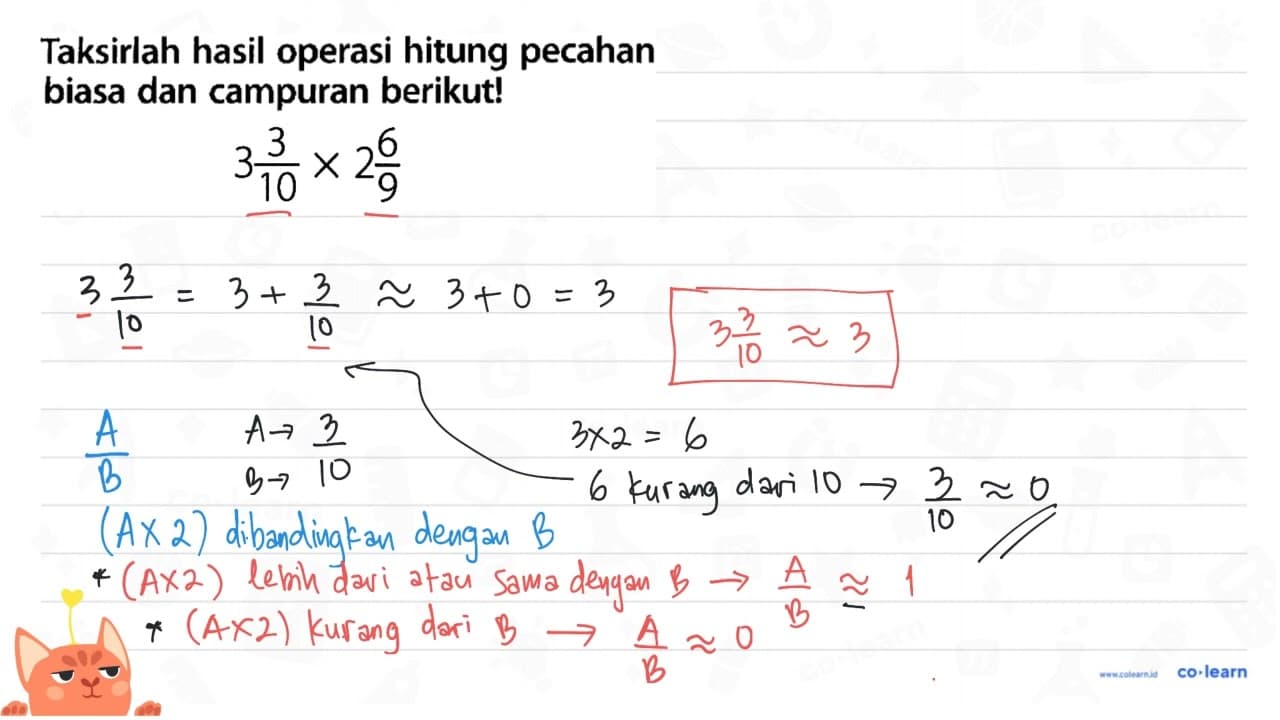 Taksirlah hasil operasi hitung pecahan
biasa dan campuran berikut!
3 3/10 × 2 6/9
3 3/10 = 3 + 3/10 ≈ 3 + 0 = 3
3 3/10 ≈ 3
A/B
A → 3
B → 10
3 × 2 = 6
6 kurang dari 10 → 3/10 ≈ 0
(A × 2) dibandingkan dengan B
* (A × 2) lebih dari atau sama dengan B → A/B ≈ 1
* (A × 2) kurang dari B → A/B ≈ 0
www.colearn.id co·learn